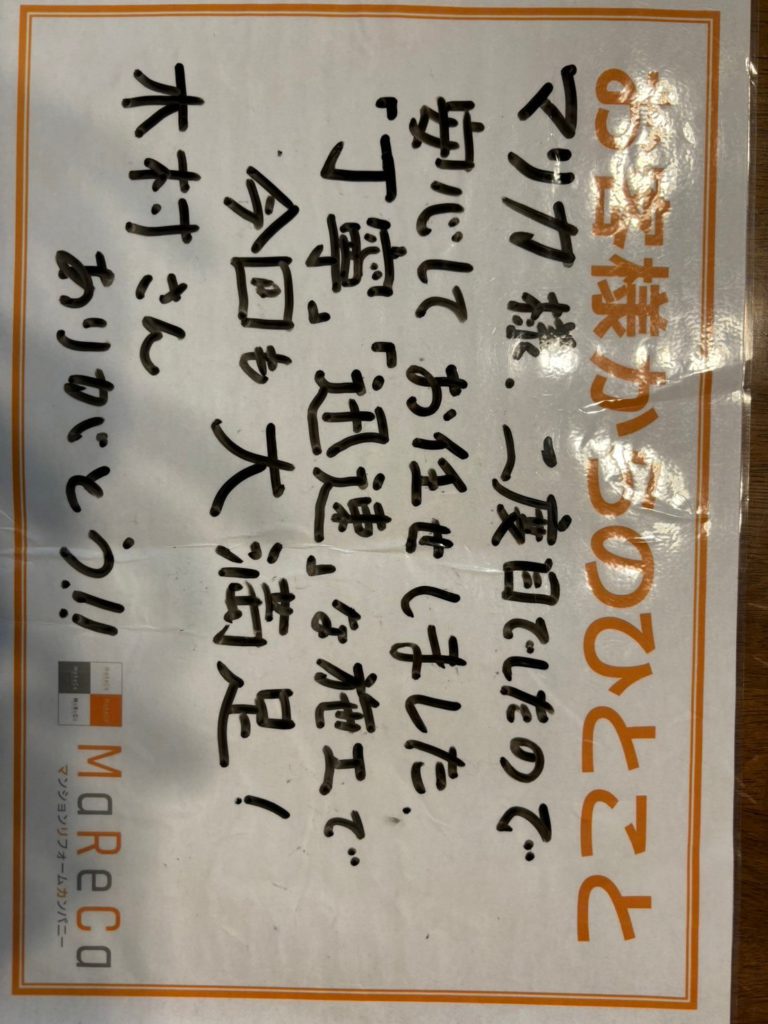 お客様からのひとこと
マリカ様、二度目でしたので
安心して お任せしました、
「丁寧」「迅速」な施工で
今回も大満足!
木村さん
ありがとう!!
MaReCa
マンションリフォームカンパニー